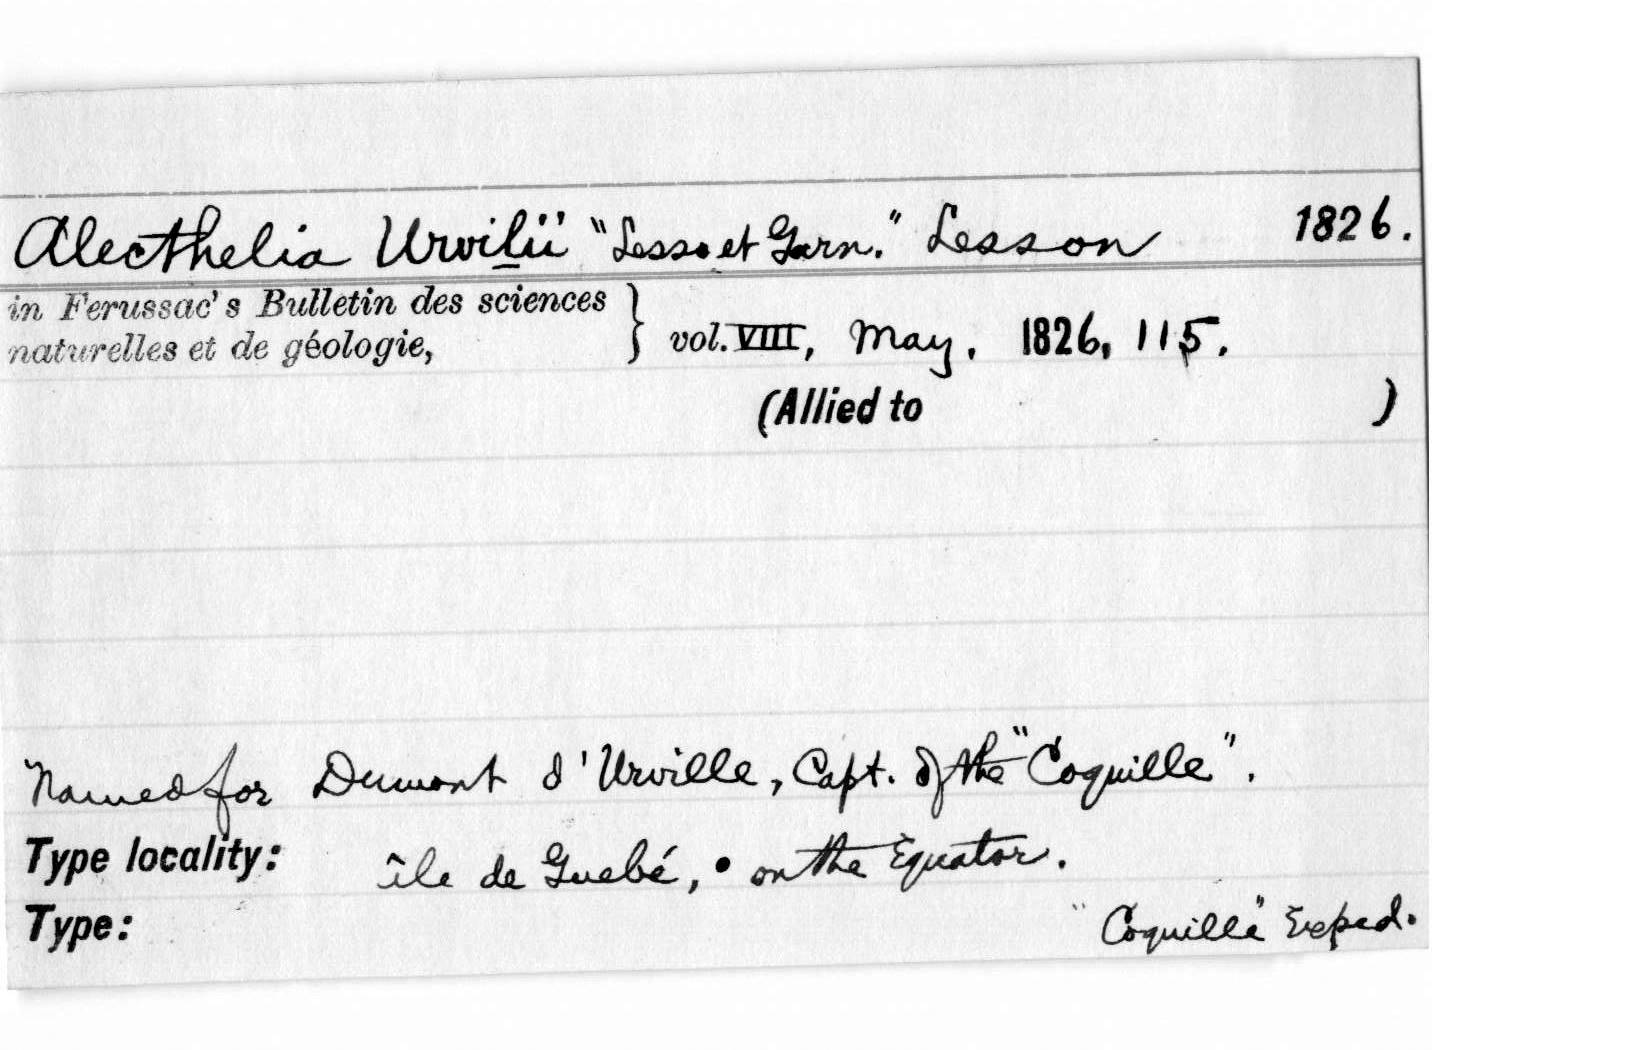 Alecthelia Urvilii "Less. et Garn." Lesson 1826.
in Ferussac's Bulletin des sciences
naturelles et de géologie, } vol. VIII, May, 1826, 115.
(Allied to )
Named for Dumont d'Urville, Capt. of the "Coquille".
Type locality: île de Guebé, • on the Equator.
Type: "Coquille" Exped.